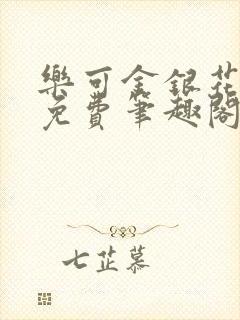 樂可金銀花
免費筆趣閣
七芷慕